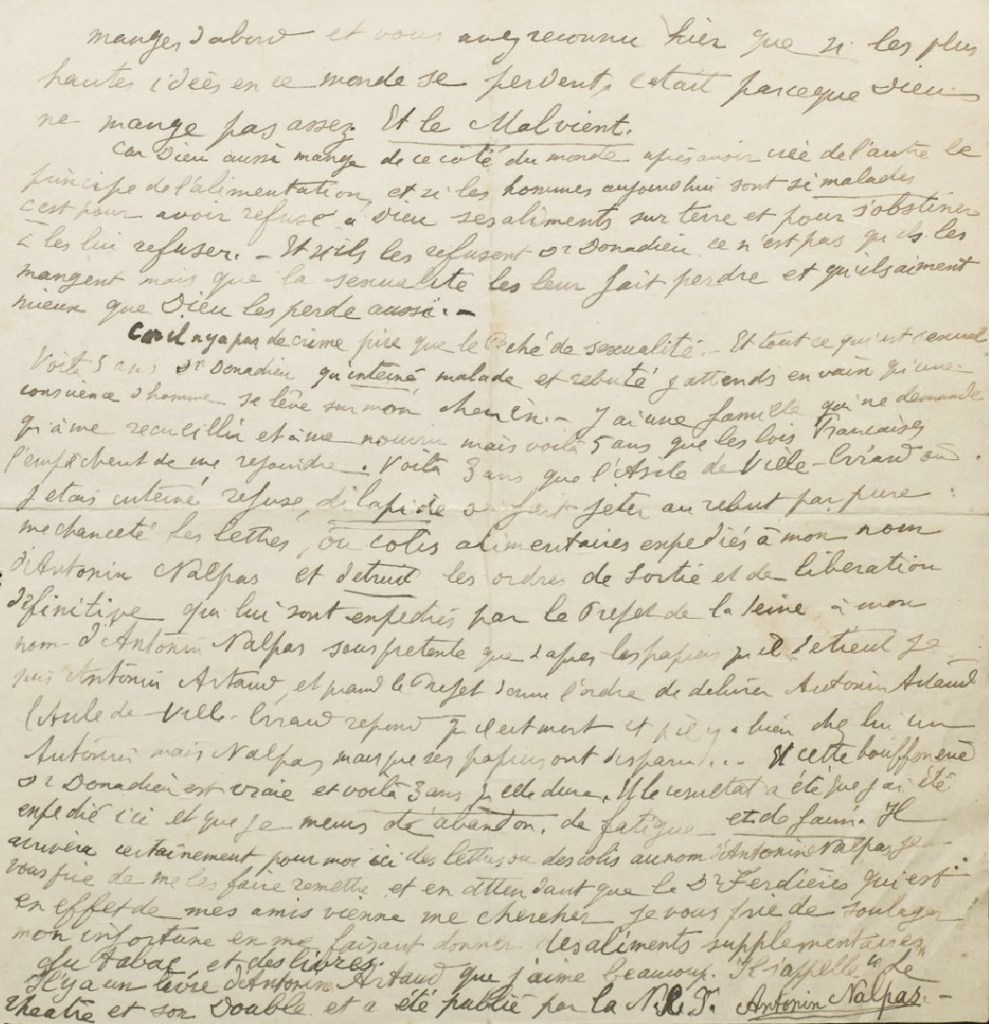 manger d'abord et vous avez reconnu hier que si les plus
hautes idées en ce monde se perdent, c'était parceque Dieu
ne mange pas assez. Et le Mal vient.
Car Dieu aussi mange de ce côté du monde après avoir créé de l'autre le
principe de l'alimentation, et si les hommes aujourd'hui sont si malades
c'est pour avoir refusé à Dieu ses aliments sur terre et pour s'obstiner
à les lui refuser. - Et s'ils les refusent Dr Donadieu ce n'est pas qu'ils les
mangent mais que la sexualité les leur fait perdre et qu'ils aiment
mieux que Dieu les perde aussi. -
Car il n'y a pas de crime pire que le Péché de sexualité. - Et tout ce qui est sexuel
Voilà 5 ans Dr Donadieu qu'interné malade et rebuté j'attends en vain qu'une
conscience d'homme se lève sur mon chemin. - J'ai une famille qui ne demande
qu'à me recueillir et à me nourrir mais voilà 5 ans que les lois Françaises
l'empêchent de me rejoindre. Voilà 3 ans que l'Asile de Ville-Evrard où
j'étais interné refuse, dilapide ou fait jeter au rebut par pure
méchanceté les lettres, ou colis alimentaires expédiés à mon nom
d'Antonin Nalpas et détruit les ordres de sortie et de libération
définitive qui lui sont expédiés par le Préfet de la Seine à mon
nom d'Antonin Nalpas sous prétexte que d'après les papiers qu'il détient je
suis Antonin Artaud, et quand le Préfet donne l'ordre de délivrer Antonin Artaud
l'Asile de Ville-Evrard répond qu'il est mort et qu'il y a bien chez lui un
Antonin mais Nalpas mais que ses papiers ont disparu... Et cette bouffonnerie
Dr Donadieu est vraie et voilà 3 ans qu'elle dure. Et le résultat a été que j'ai été
expédié ici et que je meurs d'abandon, de fatigue et de faim. Il
arrivera certainement pour moi ici des lettres ou des colis au nom d'Antonin Nalpas je
vous prie de me les faire remettre et en attendant que le Dr Ferdière qui est
en effet de mes amis vienne me chercher je vous prie de soulager
mon infortune en me faisant donner des aliments supplémentaires
du tabac et des livres.
Il y a un livre d'Antonin Artaud que j'aime beaucoup. Il s'appelle "Le
Theatre et son Double et a été publié par la N.R.F. Antonin Nalpas. -